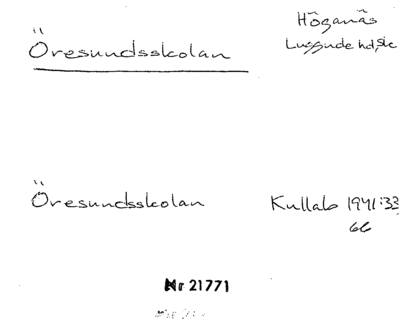 Öresundsskolan
Höganäs
Luggude hd, Sk
Öresundsskolan
Kullab 1941:33
66
Nr 21771